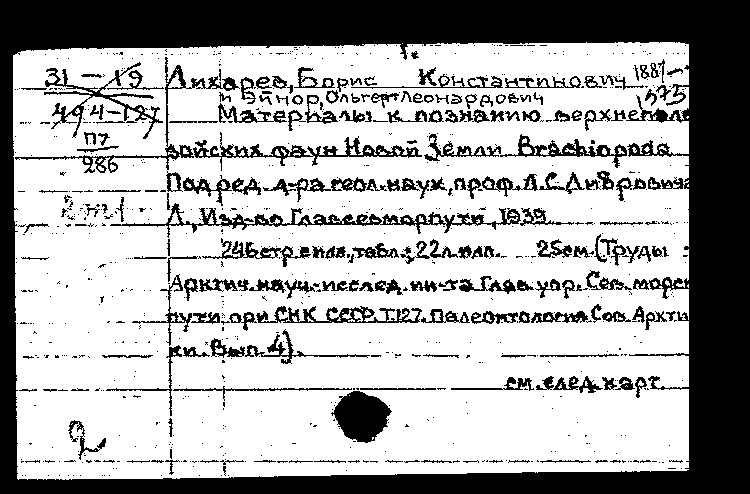 1.
31 – 19
494-127
П7
286
2
Лихарев, Борис Константинович 1887–
и Эйнор, Ольгерт Леонардович
Материалы к познанию верхнепале
зойских фаун Новой Земли Brachiopoda
Под ред. д-ра геол. наук, проф. Л.С. Либровича
Л., Изд-во Главсевморпути, 1939.
246 стр. с илл., табл.; 22 л. илл. 25 см. (Труды
Арктич. науч.-исслед. ин-та Глав. упр. Сев. морск
пути при СНК СССР. Т.127. Палеонтология Сов. Аркти
ки. Вып. 4).
см. след. карт.